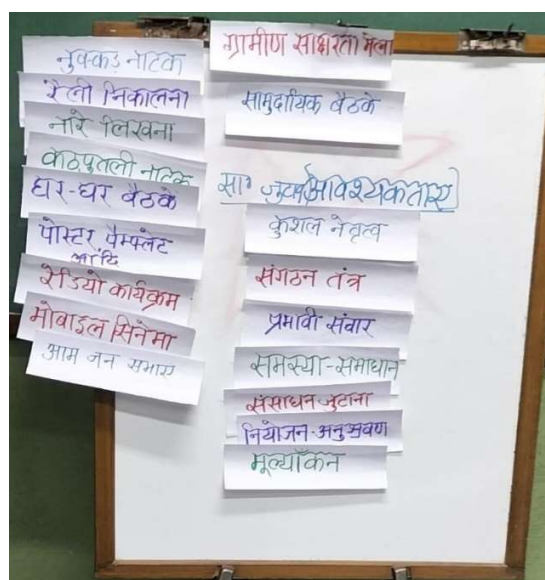 नुक्कड़ नाटक
रैली निकालना
नारे लिखना
कठपुतली नाटक
घर-घर बैठके
पोस्टर पैम्फ्लेट
आदि
रेडियो कार्यक्रम
मोबाइल सिनेमा
आम जन सभाएं
ग्रामीण साक्षरता मेला
सामुदायिक बैठके
सा० जुटाव आवश्यकताएं
कुशल नेतृत्व
संगठन तंत्र
प्रभावी संवार
समस्या-समाधान
संसाधन जुटाना
नियोजन-अनुश्रवण
मूल्याँकन